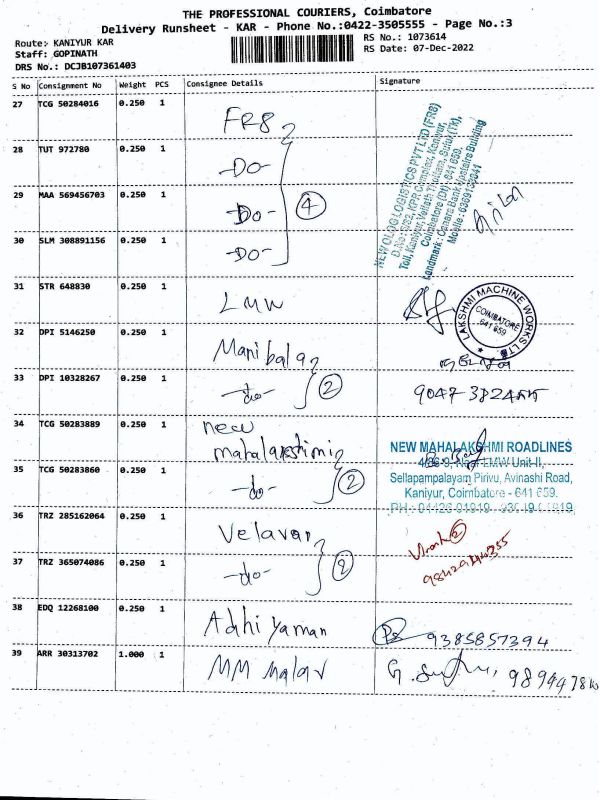 THE PROFESSIONAL COURIERS, Coimbatore
Delivery Runsheet - KAR - Phone No.:0422-3505555 - Page No.:3
Route: KANIYUR KAR
Staff: GOPINATH
DRS No.: DCJB107361403
RS No.: 1073614
RS Date: 07-Dec-2022
S No Consignment No Weight PCS Consignee Details Signature
27 TCG 50284016 0.250 1 FR8
28 TUT 972780 0.250 1 -Do-
29 MAA 569456703 0.250 1 -Do- 4
30 SLM 308891156 0.250 1 -Do-
NEW OLOG LOGISTICS PVT LTD (FR8)
D.No: 5/82, KPR Complex, Kaniyur,
Coimbatore (Dt) 641 659.
Landmark: Canara Bank Upstairs Building
31 STR 648830 0.250 1 LMW
LAKSHMI MACHINE WORKS LTD
COIMBATORE
641 659
32 DPI 5146250 0.250 1 Manibala
33 DPI 10328267 0.250 1 -do- 2
34 TCG 50283889 0.250 1 new
mahalakstimi
35 TCG 50283860 0.250 1 -do- 2
NEW MAHALAKSHMI ROADLINES
Sellapampalayam Pirivu, Avinashi Road,
Kaniyur, Coimbatore - 641 659.
36 TRZ 285162064 0.250 1 Velavan
37 TRZ 365074086 0.250 1 -do- 2
38 EDQ 12268100 0.250 1 Adhiyaman 9385857394
39 ARR 30313702 1.000 1 MM Malar